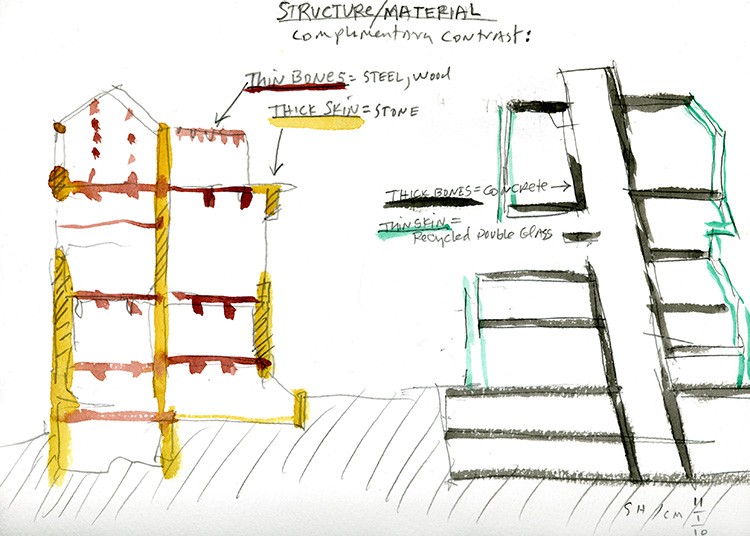 STRUCTURE/MATERIAL
complementary contrast:
THIN BONES = STEEL, WOOD
THICK SKIN = STONE
THICK BONES = CONCRETE
THIN SKIN =
Recycled Double Glass
SH/CM 11/1/10